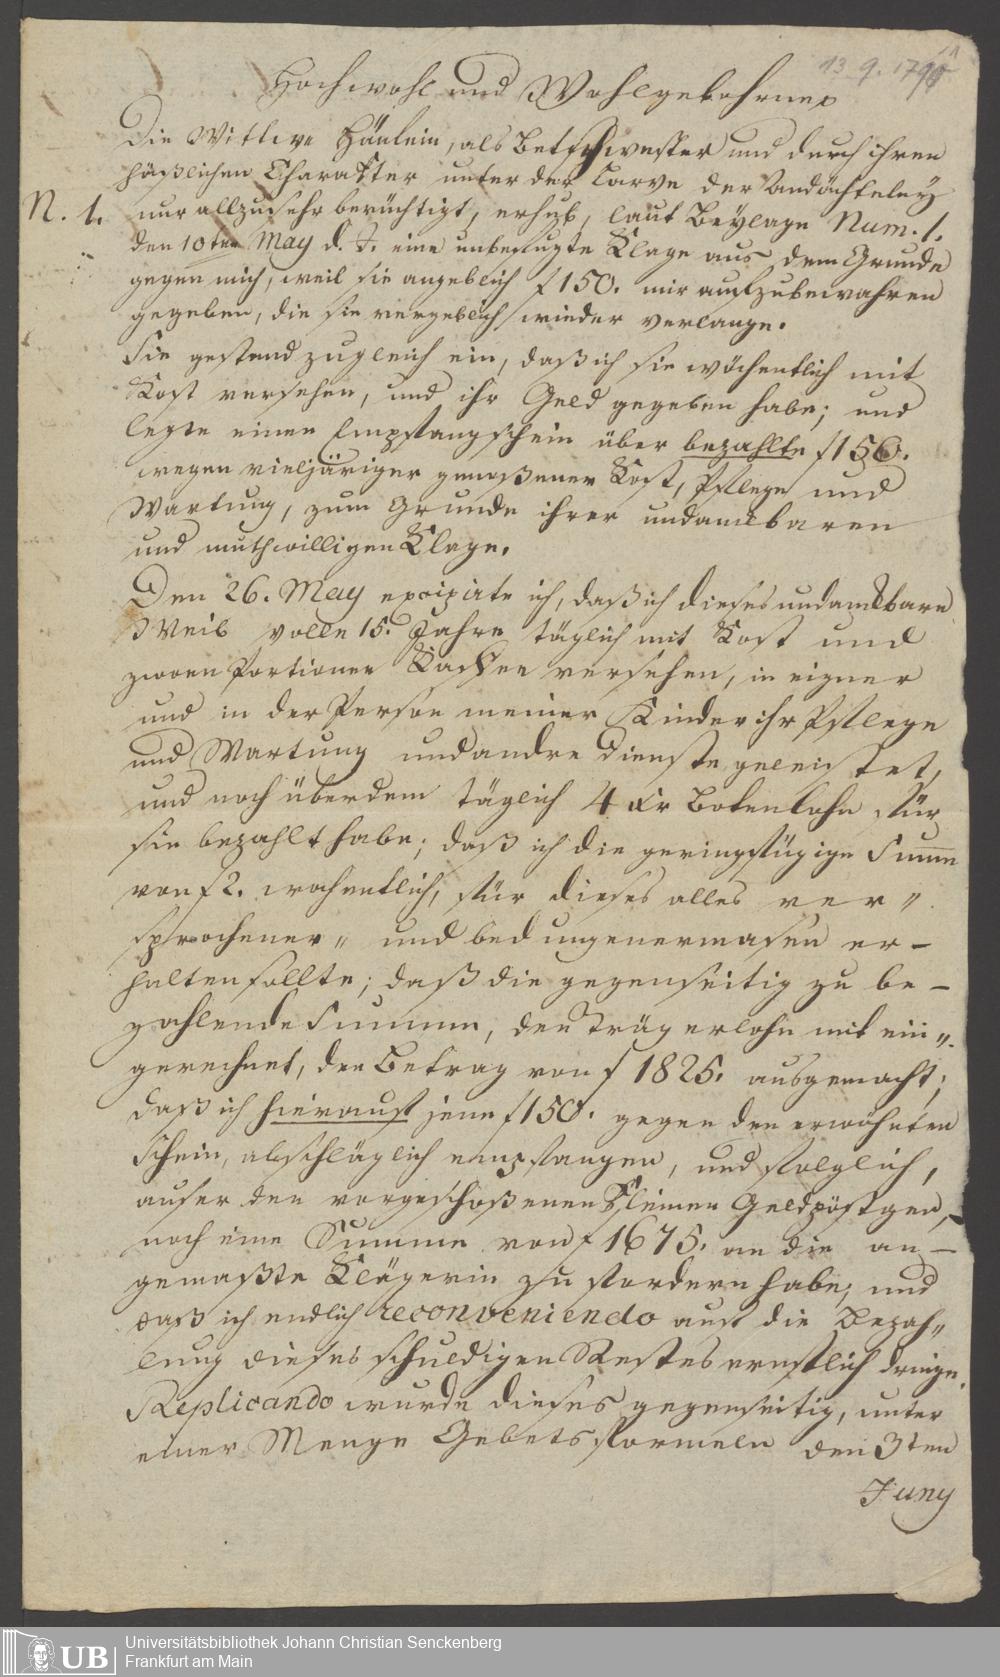 13. 9. 1790
Hochwohl und Wohlgebohrner
Die Wittwe Häulein, als Betschwester und durch ihren
häßlichen Charakter unter der Larve der Andächteley
N. 1. nur allzusehr berüchtigt, erhub, laut Beylage Num. 1.
den 10ten May d. J. eine unbefugte Klage aus dem Grunde
gegen mich, weil sie angeblich f 150. mir aufzubewahren
gegeben, die sie vergeblich wieder verlange.
Sie gestand zugleich ein, daß ich sie wöchentlich mit
Kost versehen, und ihr Geld gegeben habe; und
legte einen Empfangschein über bezahlte f 150.
wegen vieljäriger genoßener Kost, Pflege und
Wartung, zum Grunde ihrer undankbaren
und muthwilligen Klage.
Den 26. May excipirte ich, daß ich dieses undankbare
Weib volle 15. Jahre täglich mit Kost und
zwoen Portionen Kaffee versehen, in eigner
und in der Person meiner Kinder ihr Pflege
und Wartung und andre Dienste geleistet,
und noch überdem täglich 4 xr Botenlohn für
sie bezahlt habe; daß ich die geringfügige Summ
von f 2. wochentlich, für dieses alles ver〃
sprochener〃 und bedungenermasen er-
halten sollte; daß die gegenseitig zu be-
zahlende Summe, den Trägerlohn mit ein〃
gerechnet, den Betrag von f 1825. ausgemacht;
daß ich hierauf jene f 150. gegen den erwöhnten
Schein, abschläglich empfangen, und folglich,
auser den vorgeschoßenen kleinen Geldpöstgen,
noch eine Summe von f 1675. an die an-
gemaßte Klägerin zu fordern habe; und
daß ich endlich reconveniendo auf die Bezah〃
lung dieses schuldigen Restes ernstlich dringe.
Replicando wurde dieses gegenseitig, unter
einer Menge Gebetsformeln den 3ten
Juny
UB
Universitätsbibliothek Johann Christian Senckenberg
Frankfurt am Main